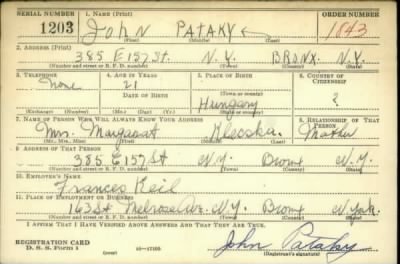 SERIAL NUMBER 1. NAME (Print) ORDER NUMBER
1203 John Pataky 1843
(First) (Middle) (Last)
2. ADDRESS (Print)
385 E 157 St. N.Y. BRONX. N.Y.
(Number and street or R. F. D. number) (Town) (County) (State)
3. TELEPHONE 4. AGE IN YEARS 5. PLACE OF BIRTH 6. COUNTRY OF CITIZENSHIP
None 21
DATE OF BIRTH (Town or county)
Hungary ?
(Exchange) (Number) (Mo.) (Day) (Yr.) (State or country)
7. NAME OF PERSON WHO WILL ALWAYS KNOW YOUR ADDRESS 8. RELATIONSHIP OF THAT PERSON
Mrs. Margaret Klecska. Mother
(Mr., Mrs., Miss) (First) (Middle) (Last)
9. ADDRESS OF THAT PERSON
385 E 157 St N.Y. Bronx N.Y.
(Number and street or R. F. D. number) (Town) (County) (State)
10. EMPLOYER'S NAME
Frances Reid
11. PLACE OF EMPLOYMENT OR BUSINESS
163 St Melrose Ave. N.Y. Bronx N York.
(Number and street or R. F. D. number) (Town) (County) (State)
I AFFIRM THAT I HAVE VERIFIED ABOVE ANSWERS AND THAT THEY ARE TRUE.
REGISTRATION CARD
D. S. S. Form 1 (over) 16—17105 John Pataky
(Registrant's signature)